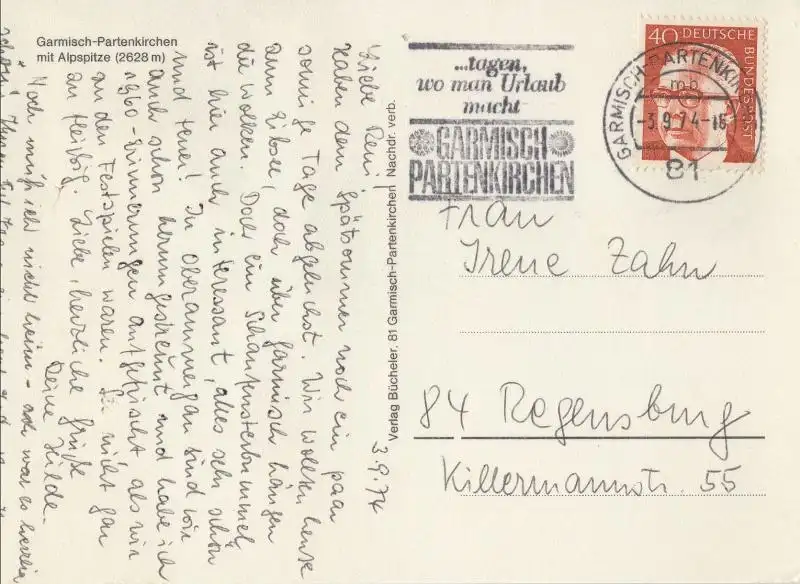 Garmisch-Partenkirchen
mit Alpspitze (2628 m)
3.9.74
Liebe Reni!
Haben dem Spätsommer noch ein paar
sonnige Tage abgeluchst. Wir wollten heute
zum Eibsee, doch über Garmisch hängen
die Wolken. Doch ein Schaufensterbummel
ist hier auch interessant, alles sehr schön
und teuer! In Oberammergau sind wir
auch schon herumgestreunt und habe ich
1960-Erinnerungen aufgefrischt, als wir
an den Festspielen waren. Sei nicht gar
zu fleißig. Liebe, herzliche Grüße
Deine Hilde.
Noch muß ich nicht heim - ach war es herrlich
Verlag Bücheler, 81 Garmisch-Partenkirchen Nachdr. verb.
...tagen,
wo man Urlaub
macht
GARMISCH
PARTENKIRCHEN
40 DEUTSCHE BUNDESPOST
GARMISCH-PARTENKIRCHEN
mb
-3.9.74-16
81
Frau
Irene Zahn
84 Regensburg
Killermannstr. 55